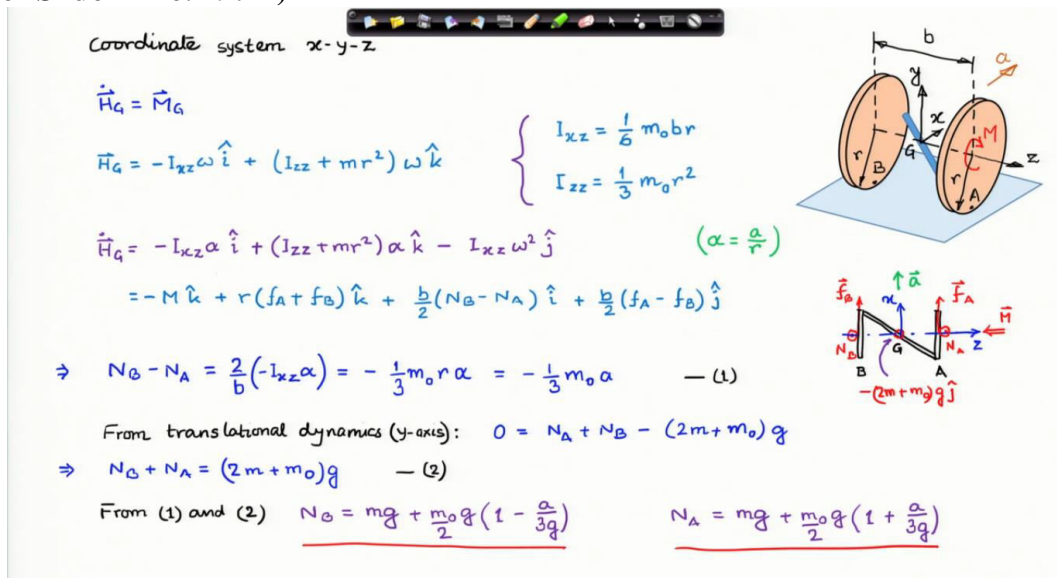 Coordinate system x-y-z
\dot{\vec{H}}_G = \vec{M}_G
\vec{H}_G = -I_{xz}ω \hat{i} + (I_{zz} + mr²) ω \hat{k}
I_{xz} = \frac{1}{6} m_0 b r
I_{zz} = \frac{1}{3} m_0 r²
\dot{\vec{H}}_G = -I_{xz}α \hat{i} + (I_{zz} + mr²) α \hat{k} - I_{xz} ω² \hat{j} (α = \frac{a}{r})
= -M \hat{k} + r(f_A + f_B) \hat{k} + \frac{b}{2}(N_B - N_A) \hat{i} + \frac{b}{2}(f_A - f_B) \hat{j}
⇒ N_B - N_A = \frac{2}{b}(-I_{xz}α) = -\frac{1}{3} m_0 r α = -\frac{1}{3} m_0 a — (1)
From translational dynamics (y-axis): 0 = N_A + N_B - (2m + m_0) g
⇒ N_B + N_A = (2m + m_0)g — (2)
From (1) and (2) N_B = mg + \frac{m_0}{2} g (1 - \frac{a}{3g}) N_A = mg + \frac{m_0}{2} g (1 + \frac{a}{3g})
b
a
y
x
M
G
z
r
B
r
A
\vec{a}
\vec{f}_B
x
\vec{F}_A
\vec{M}
N_B
G
N_A
z
B
A
-(2m+m_0)g\hat{j}